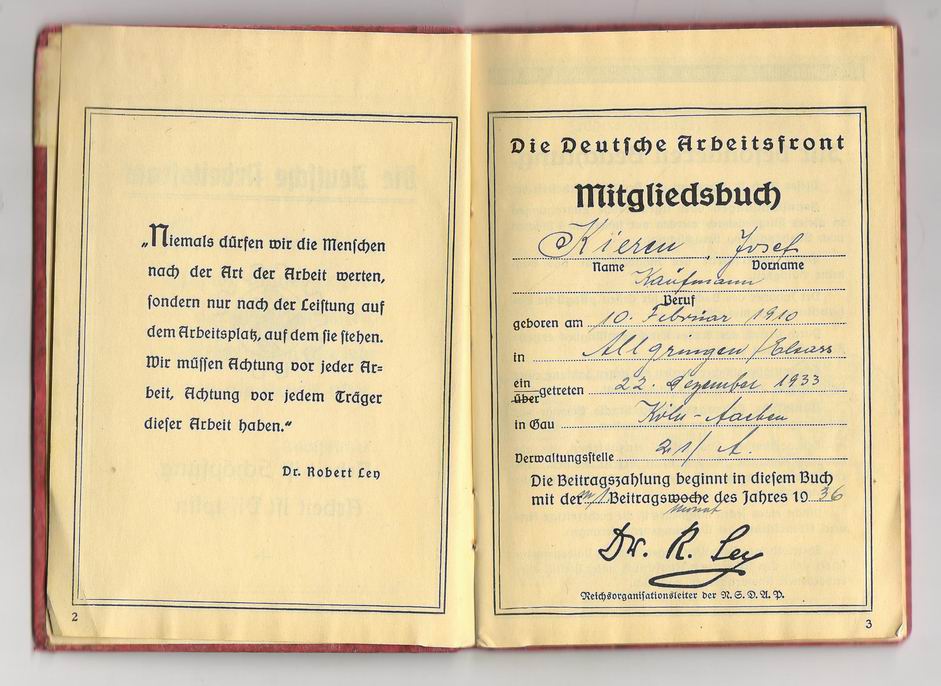 „Niemals dürfen wir die Menschen
nach der Art der Arbeit werten,
sondern nur nach der Leistung auf
dem Arbeitsplatz, auf dem sie stehen.
Wir müssen Achtung vor jeder Ar=
beit, Achtung vor jedem Träger
dieser Arbeit haben.“
Dr. Robert Ley
2
Die Deutsche Arbeitsfront
Mitgliedsbuch
Kieren, Josef
Name Vorname
Kaufmann
Beruf
geboren am 10. Februar 1910
in Allgringen/Elsass
ein
über getreten 22. Dezember 1933
in Gau Köln-Aachen
Verwaltungsstelle 21/A.
Die Beitragszahlung beginnt in diesem Buch
mit der Beitragswoche des Jahres 1936
monat
Dr. R. Ley
Reichsorganisationsleiter der N.S.D.A.P.
3